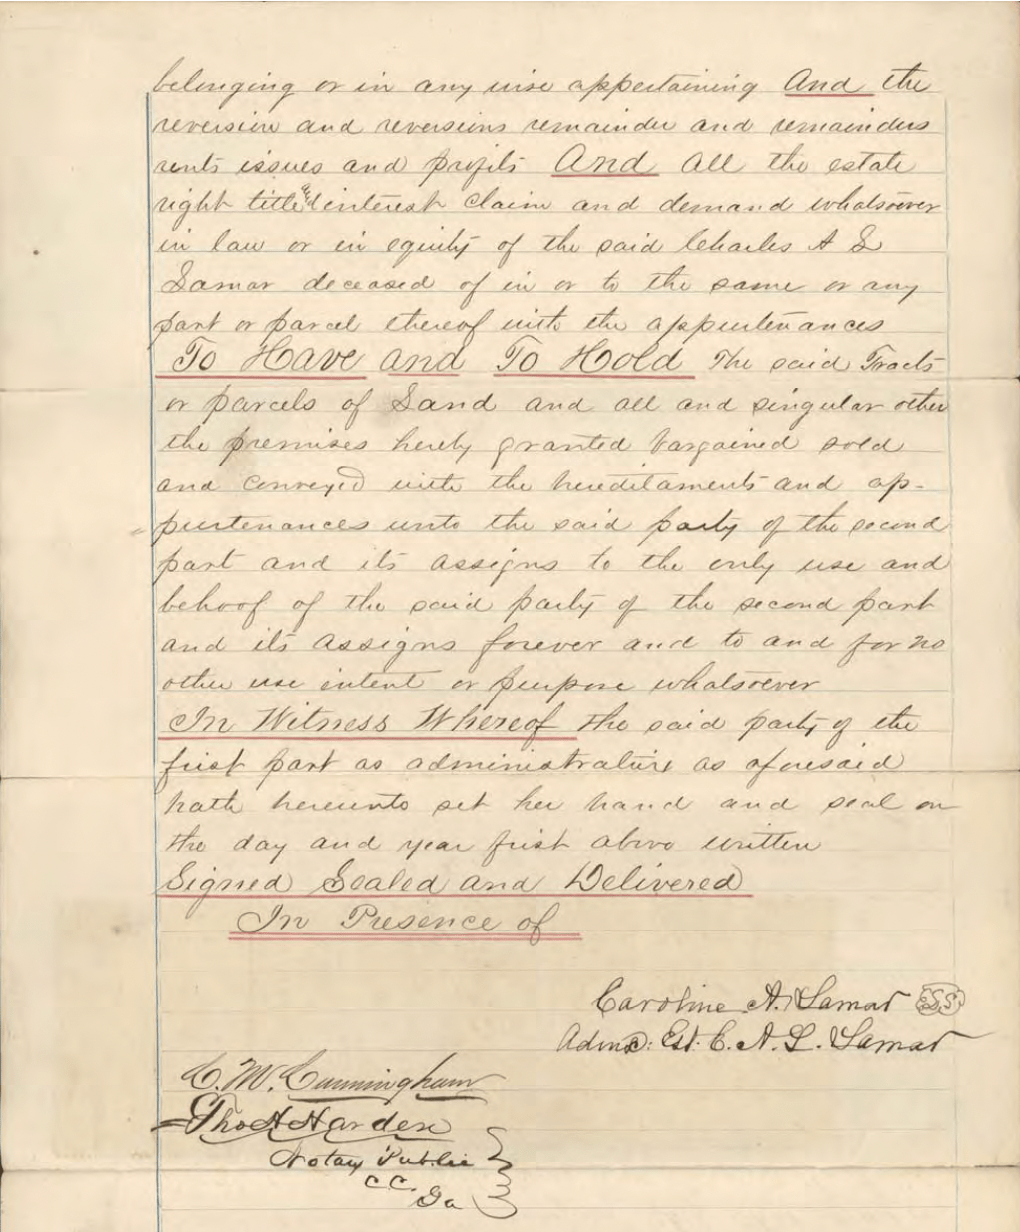 belonging or in any wise appertaining And the
reversion and reversions remainder and remainders
rents issues and profits And all the estate
right title & interest claim and demand whatsoever
in law or in equity of the said Charles A L
Lamar deceased of in or to the same or any
part or parcel thereof with the appurtenances
To Have and To Hold The said Tracts
or parcels of Land and all and singular other
the premises hereby granted bargained sold
and conveyed with the hereditaments and ap-
purtenances unto the said party of the second
part and its assigns to the only use and
behoof of the said party of the second part
and its assigns forever and to and for no
other use intent or purpose whatsoever
In Witness Whereof the said party of the
first part as administratrix as aforesaid
hath hereunto set her hand and seal on
the day and year first above written
Signed Sealed and Delivered
In Presence of
Caroline A. Lamar
Admx: Est. C. A. L. Lamar
C. M. Cunningham
Tho H Harden
Notary Public
C.C. Ga